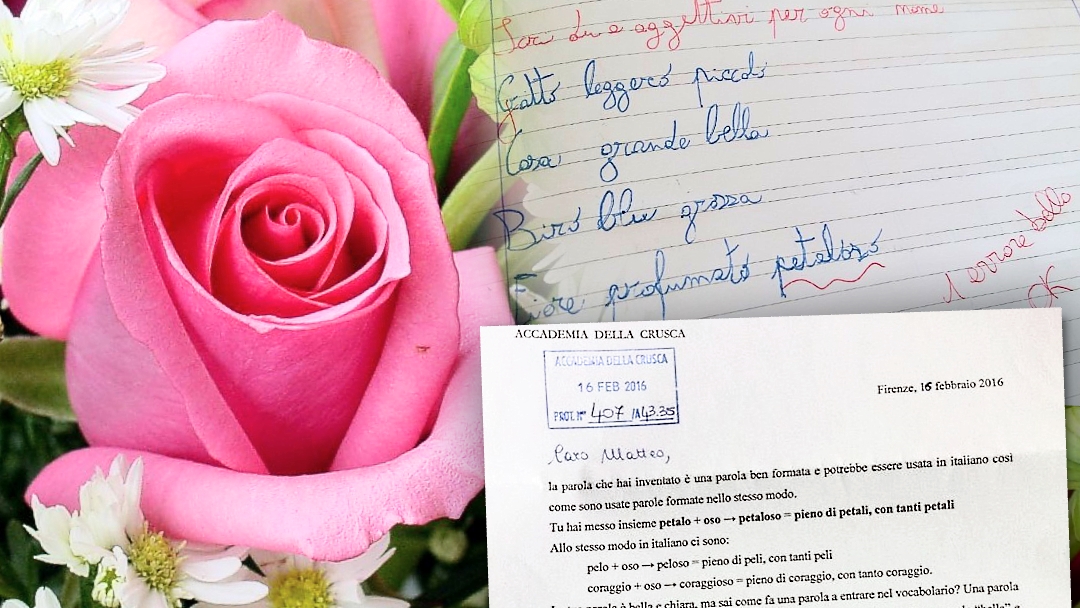 due aggettivi per ogni nome
Gatto leggero piccolo
Casa grande bella
Biro blu grossa
Fiore profumato petaloso
1 errore bello
OK
ACCADEMIA DELLA CRUSCA
ACCADEMIA DELLA CRUSCA
16 FEB 2016
PROT. N° 407 /A43.35
Firenze, 16 febbraio 2016
Caro Matteo,
la parola che hai inventato è una parola ben formata e potrebbe essere usata in italiano così
come sono usate parole formate nello stesso modo.
Tu hai messo insieme petalo + oso → petaloso = pieno di petali, con tanti petali
Allo stesso modo in italiano ci sono:
pelo + oso → peloso = pieno di peli, con tanti peli
coraggio + oso → coraggioso = pieno di coraggio, con tanto coraggio.
parola è bella e chiara, ma sai come fa una parola a entrare nel vocabolario? Una parola